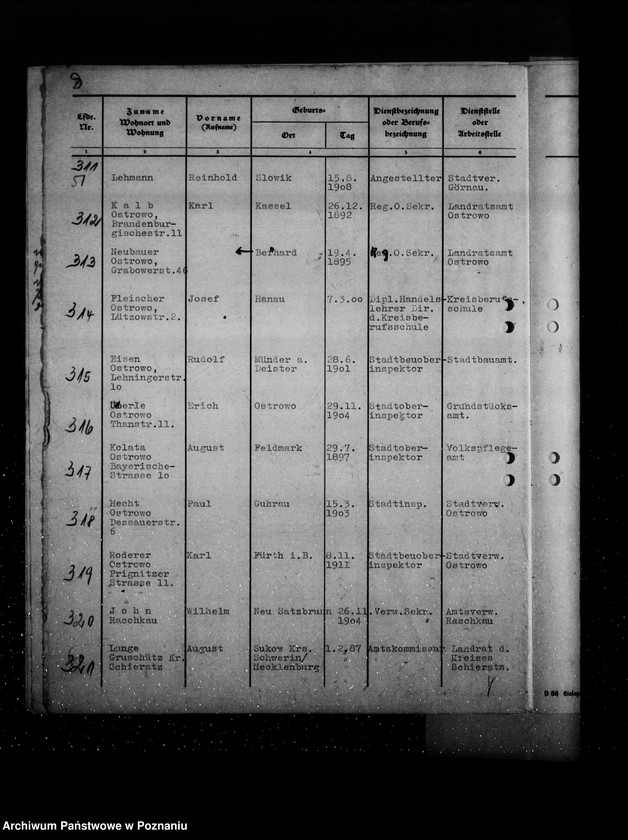 Lfde. Nr. Zuname Wohnort und Wohnung Vorname (Rufname) Geburts- Ort Tag Dienstbezeichnung oder Berufsbezeichnung Dienststelle oder Arbeitsstelle
1 2 3 4 5 6
311
51 Lehmann Reinhold Slowik 15.8. Angestellter Stadtver.
1908 Görnau.
K a l b Karl Kassel 26.12. Reg.O.Sekr. Landratsamt
312 Ostrowo, 1892 Ostrowo
Brandenbur-
gischestr.11
Neubauer ← Bernhard 19.4. Reg.O.Sekr. Landratsamt
313 Ostrowo, 1895 Ostrowo
Grabowerst.46
Fleischer Josef Hanau 7.3.00 Dipl.Handels- Kreisberufs-
314 Ostrowo, lehrer Dir. schule
Lützowstr.2. d.Kreisbe-
rufsschule
Eisen Rudolf Münder a. 28.6. Stadtbauober- Stadtbauamt.
315 Ostrowo, Deister 1901 inspektor
Lehningerstr.
10
Überle Erich Ostrowo 29.11. Stadtober- Grundstücks-
316 Ostrowo 1904 inspektor amt.
Thanstr.11.
Kolata August Feldmark 29.7. Stadtober- Volkspflege-
317 Ostrowo 1897 inspektor amt
Bayerische-
Strasse 10
Hecht Paul Guhrau 15.3. Stadtinsp. Stadtverw.
318 Ostrowo 1903 Ostrowo
Dessauerstr.
6
Roderer Karl Fürth i.B. 8.11. Stadtbeuober- Stadtverw.
319 Ostrowo 1911 inspektor Ostrowo
Prignitzer
Strasse 11.
320 J o h n Wilhelm Neu Satzbrunn 26.11. Verw.Sekr. Amtsverw.
Raschkau 1904 Raschkau
Lange August Sukow Krs. 1.2.87 Amtskommissar Landrat d.
321 Gruschütz Kr. Schwerin/ Kreises
Schieratz Mecklenburg Schieratz.
D 66
Archiwum Państwowe w Poznaniu